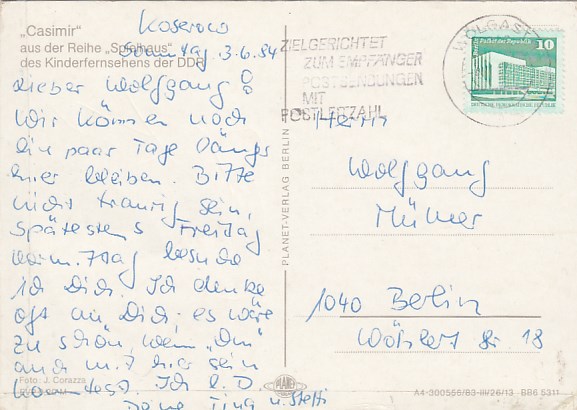 „Casimir"
aus der Reihe „Spielhaus"
des Kinderfernsehens der DDR
Koserow
Sonntag, 3.6.84
Lieber Wolfgang!
Wir können noch
ein paar Tage längs
hier bleiben. Bitte
nicht traurig sein,
spätestens Freitag
vorm. Tag besuche
ich Dich. Ich denke
oft an Dich; es wäre
zu schön, wenn „Du"
auch mit hier sein
könntest. Ich l. D.
Deine Tina u. Steffi
Foto: J. Corazza
PLANET-VERLAG BERLIN
ZIELGERICHTET
ZUM EMPFÄNGER
POSTSENDUNGEN
MIT
POSTLEITZAHL
WOLGAST
Palast der Republik
10
DEUTSCHE DEMOKRATISCHE REPUBLIK
Herrn
Wolfgang
1040 Berlin
Wöhlert Str. 18
PLANET
A4-300555/83-III/26/13 · BB6 5311